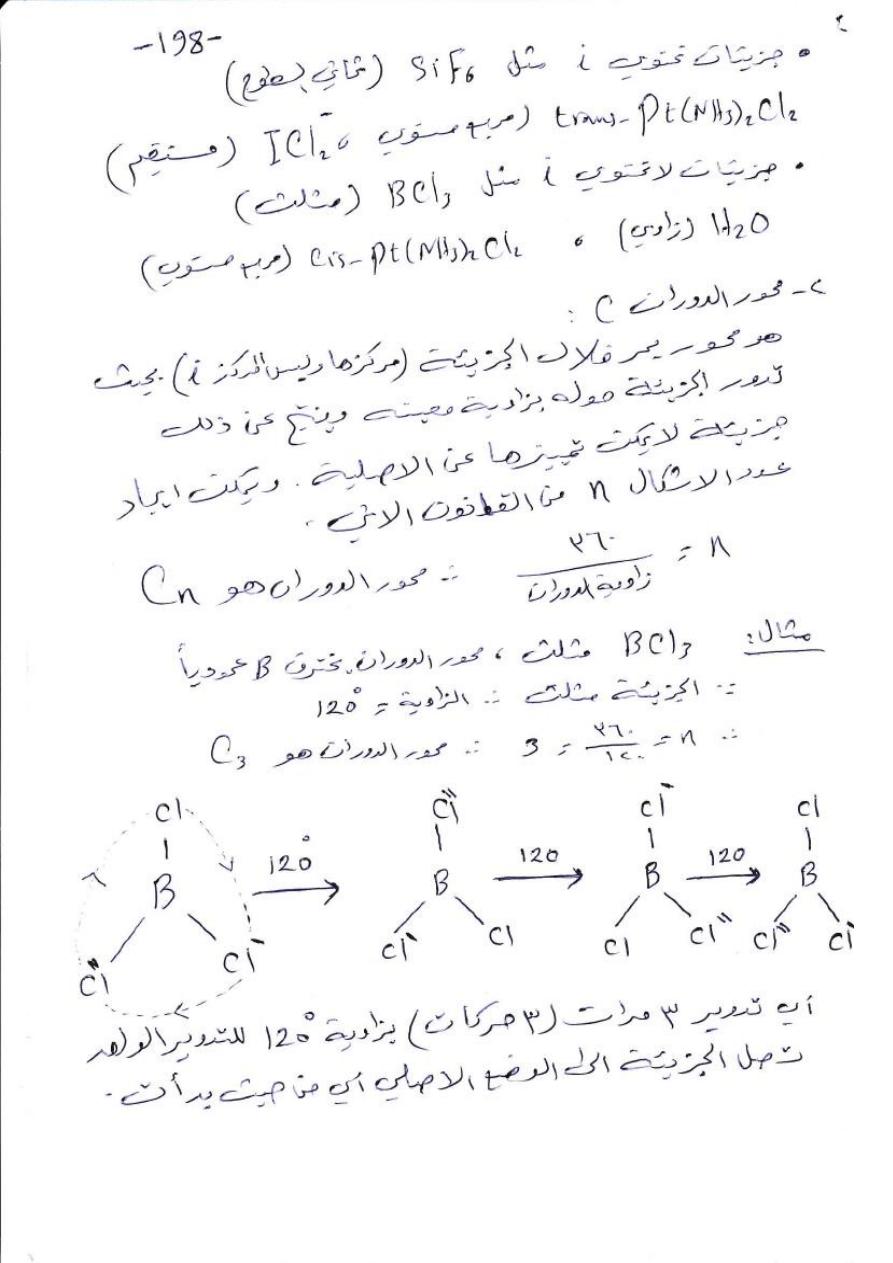 -198-
• جزيئات تحتوي i مثل SiF6 (ثماني السطوح)
trans-Pt(NH3)2Cl2 (مربع مستوي، ICl2⁻ (مستقيم)
• جزيئات لا تحتوي i مثل BCl3 (مثلث)
H2O (زاوي) ، Cis-Pt(NH3)2Cl2 (مربع مستوي)
٢- محور الدوران C :
هو محور يمر خلال الجزيئة (مركزها وليس المركز i) بحيث
تدور الجزيئة حوله بزاوية معينه وينتج عن ذلك
جزيئة لا يمكن تمييزها عن الاصلية. ويمكن ايجاد
عدد الاشكال n من القانون الاتي.
n = ٣٦٠ / زاوية الدوران ∴ محور الدوران هو Cn
مثال: BCl3 مثلث، محور الدوران يخترق B عمودياً
∵ الجزيئة مثلث ∴ الزاوية = 120°
∴ n = ٣٦٠ / ١٢٠ = 3 ∴ محور الدوران هو C3
Cl Cl" Cl' Cl
B 120° B 120 B 120 B
Cl" Cl' Cl' Cl Cl Cl" Cl" Cl'
أي تدوير ٣ مرات (٣ حركات) بزاوية 120° للتدوير الواحد
تصل الجزيئة الى الوضع الاصلي أي من حيث بدأت.